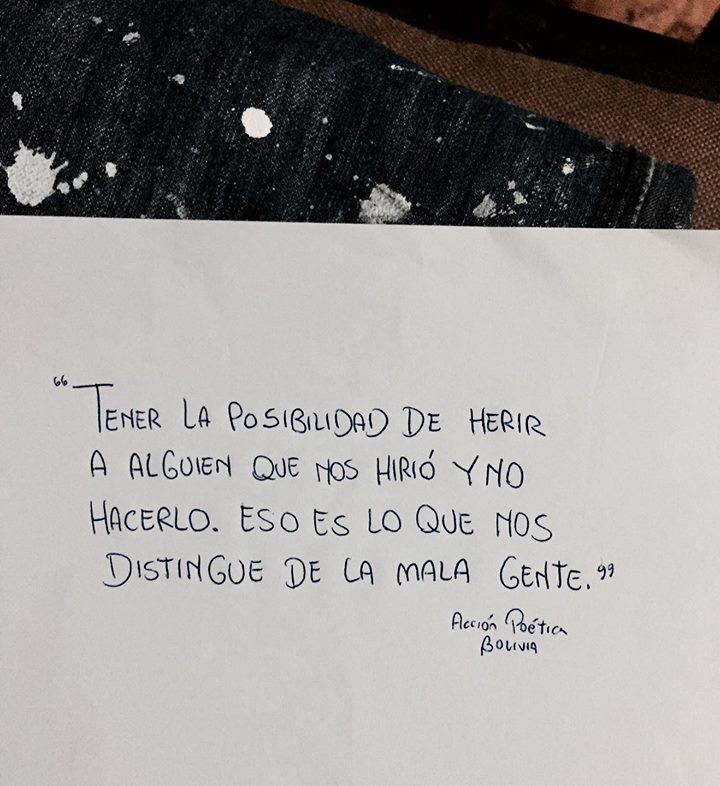 “TENER LA POSIBILIDAD DE HERIR
A ALGUIEN QUE NOS HIRIÓ Y NO
HACERLO. ESO ES LO QUE NOS
DISTINGUE DE LA MALA GENTE.”
Acción Poética
BOLIVIA